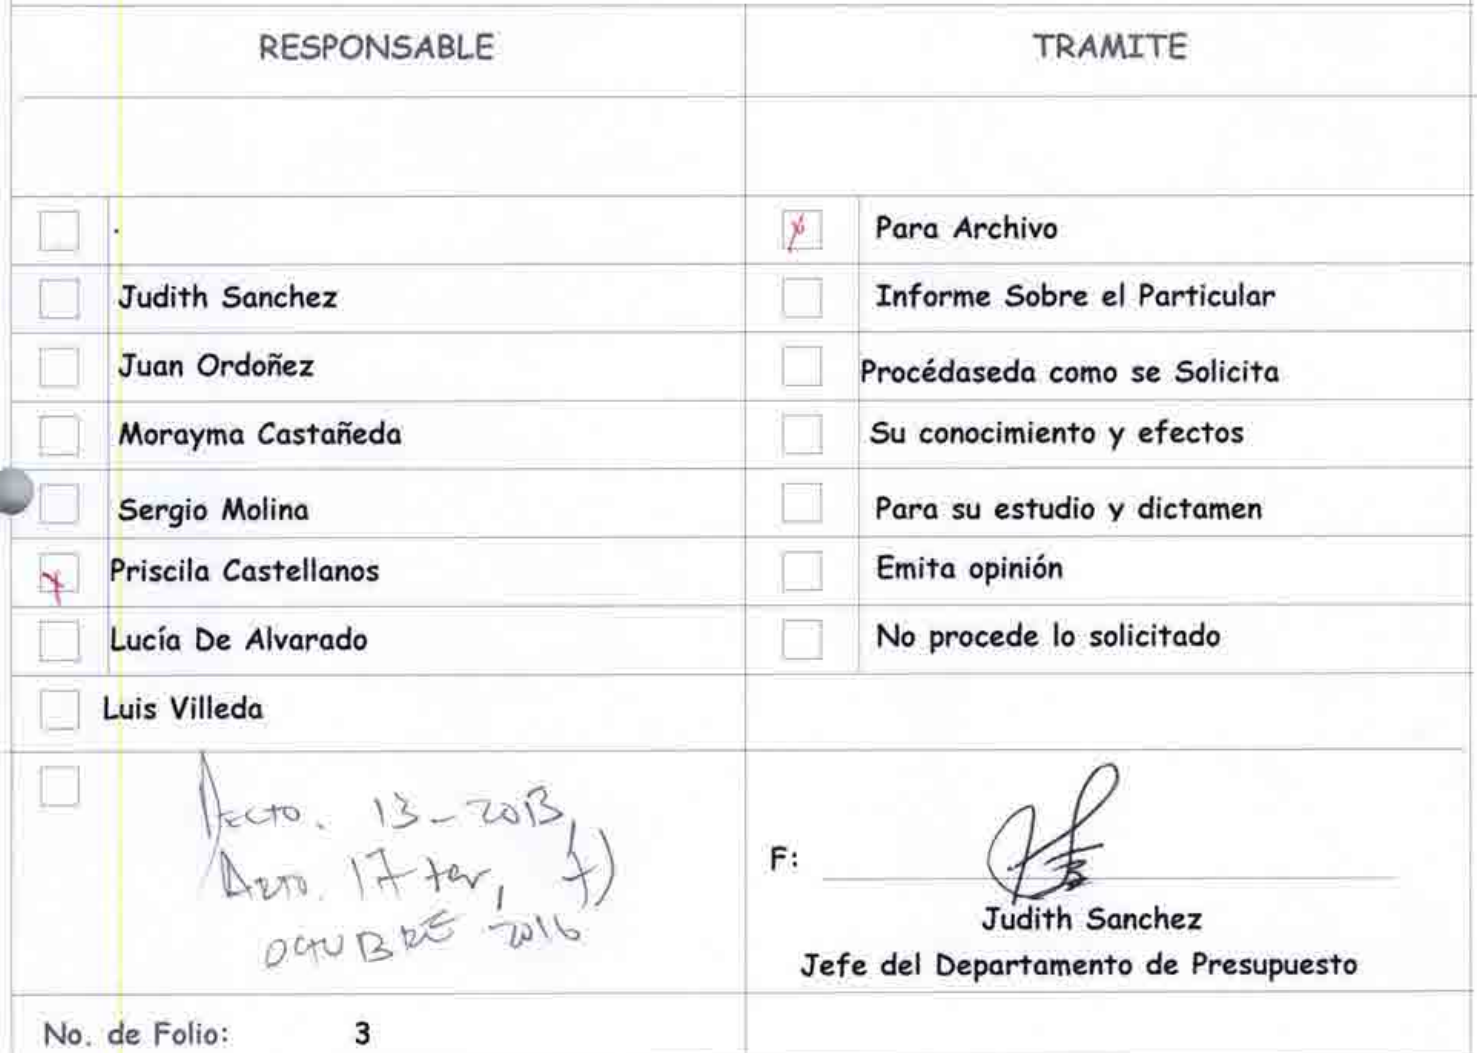 RESPONSABLE TRAMITE
Para Archivo
Judith Sanchez Informe Sobre el Particular
Juan Ordoñez Procédaseda como se Solicita
Morayma Castañeda Su conocimiento y efectos
Sergio Molina Para su estudio y dictamen
Priscila Castellanos Emita opinión
Lucía De Alvarado No procede lo solicitado
Luis Villeda
Decto. 13-2013,
Arto. 17 ter, f)
OCTUBRE 2016
F:
Judith Sanchez
Jefe del Departamento de Presupuesto
No. de Folio: 3